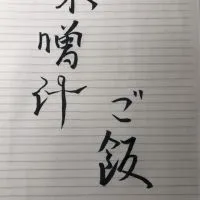 味噌汁
ご飯